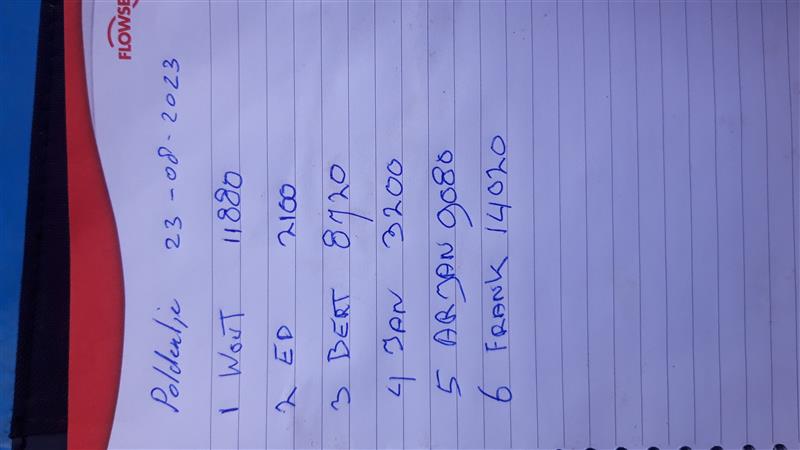 FLOWSE
Poldertje 23-08-2023
1 WOUT 11880
2 ED 2100
3 BERT 8720
4 JAN 3200
5 ARJAN 9080
6 FRANK 14020